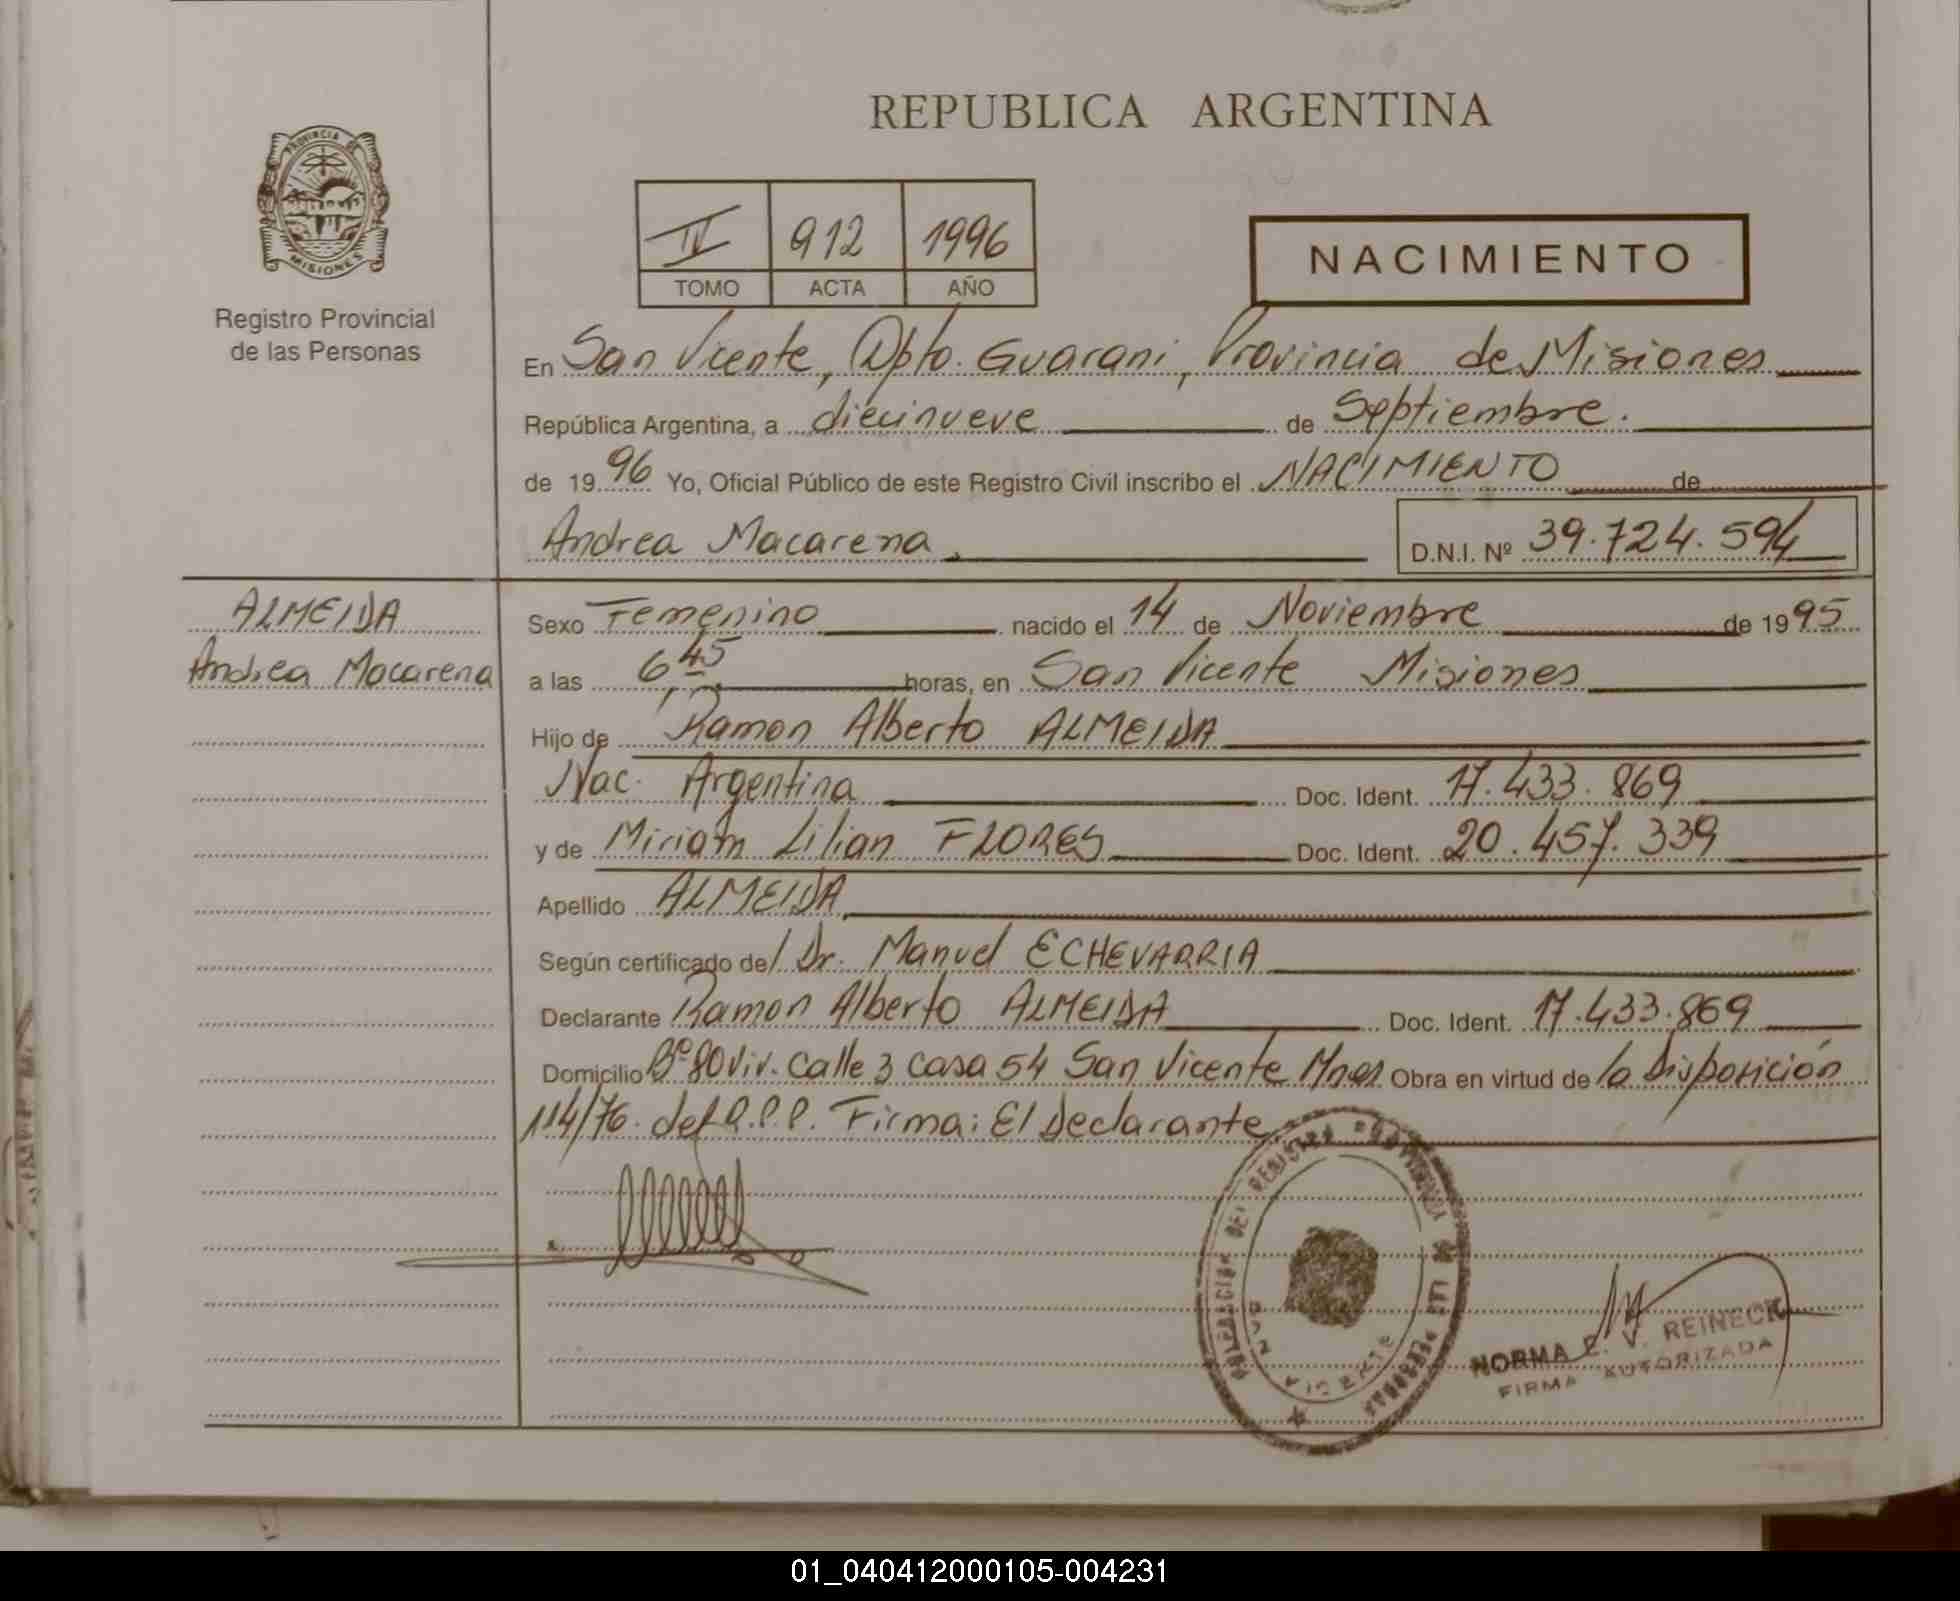 REPUBLICA ARGENTINA
PROVINCIA DE
MISIONES
Registro Provincial
de las Personas
IV 912 1996
TOMO ACTA AÑO
NACIMIENTO
En San Vicente, Dpto. Guarani, Provincia de Misiones
República Argentina, a diecinueve de Septiembre.
de 1996 Yo, Oficial Público de este Registro Civil inscribo el NACIMIENTO de
Andrea Macarena. D.N.I. Nº 39.724.594
ALMEIDA
Andrea Macarena
Sexo Femenino nacido el 14 de Noviembre de 1995
a las 6,45 horas, en San Vicente Misiones
Hijo de Ramon Alberto ALMEIDA
Nac. Argentina Doc. Ident. 17.433.869
y de Miriam Lilian FLORES Doc. Ident. 20.457.339
Apellido ALMEIDA
Según certificado del Dr. Manuel ECHEVARRIA
Declarante Ramon Alberto ALMEIDA Doc. Ident. 17.433.869
Domicilio Bº 80 Viv. Calle 3 casa 54 San Vicente Mnes Obra en virtud de la Disposición
114/76. del R.P.P. Firma: El Declarante
DEL REGISTRO PROVINCIAL DE LAS PERSONAS
SAN VICENTE
NORMA E. V. REINECK
FIRMA AUTORIZADA
01_040412000105-004231